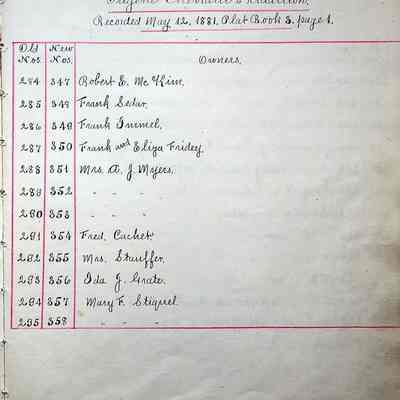 Addition.
Recorded May 12, 1881, Plat Book 3, page 1.
Old Nos. New Nos. Owners.
284 347 Robert E. McKim.
285 348 Frank Sedar.
286 349 Frank Immel.
287 350 Frank and Eliza Fridey.
288 351 Mrs. A. J. Myers.
289 352 " "
290 353 " "
291 354 Fred. Cachet.
292 355 Mrs. Stauffer.
293 356 Ida J. Grate.
294 357 Mary F. Stiquel
295 358 " " "